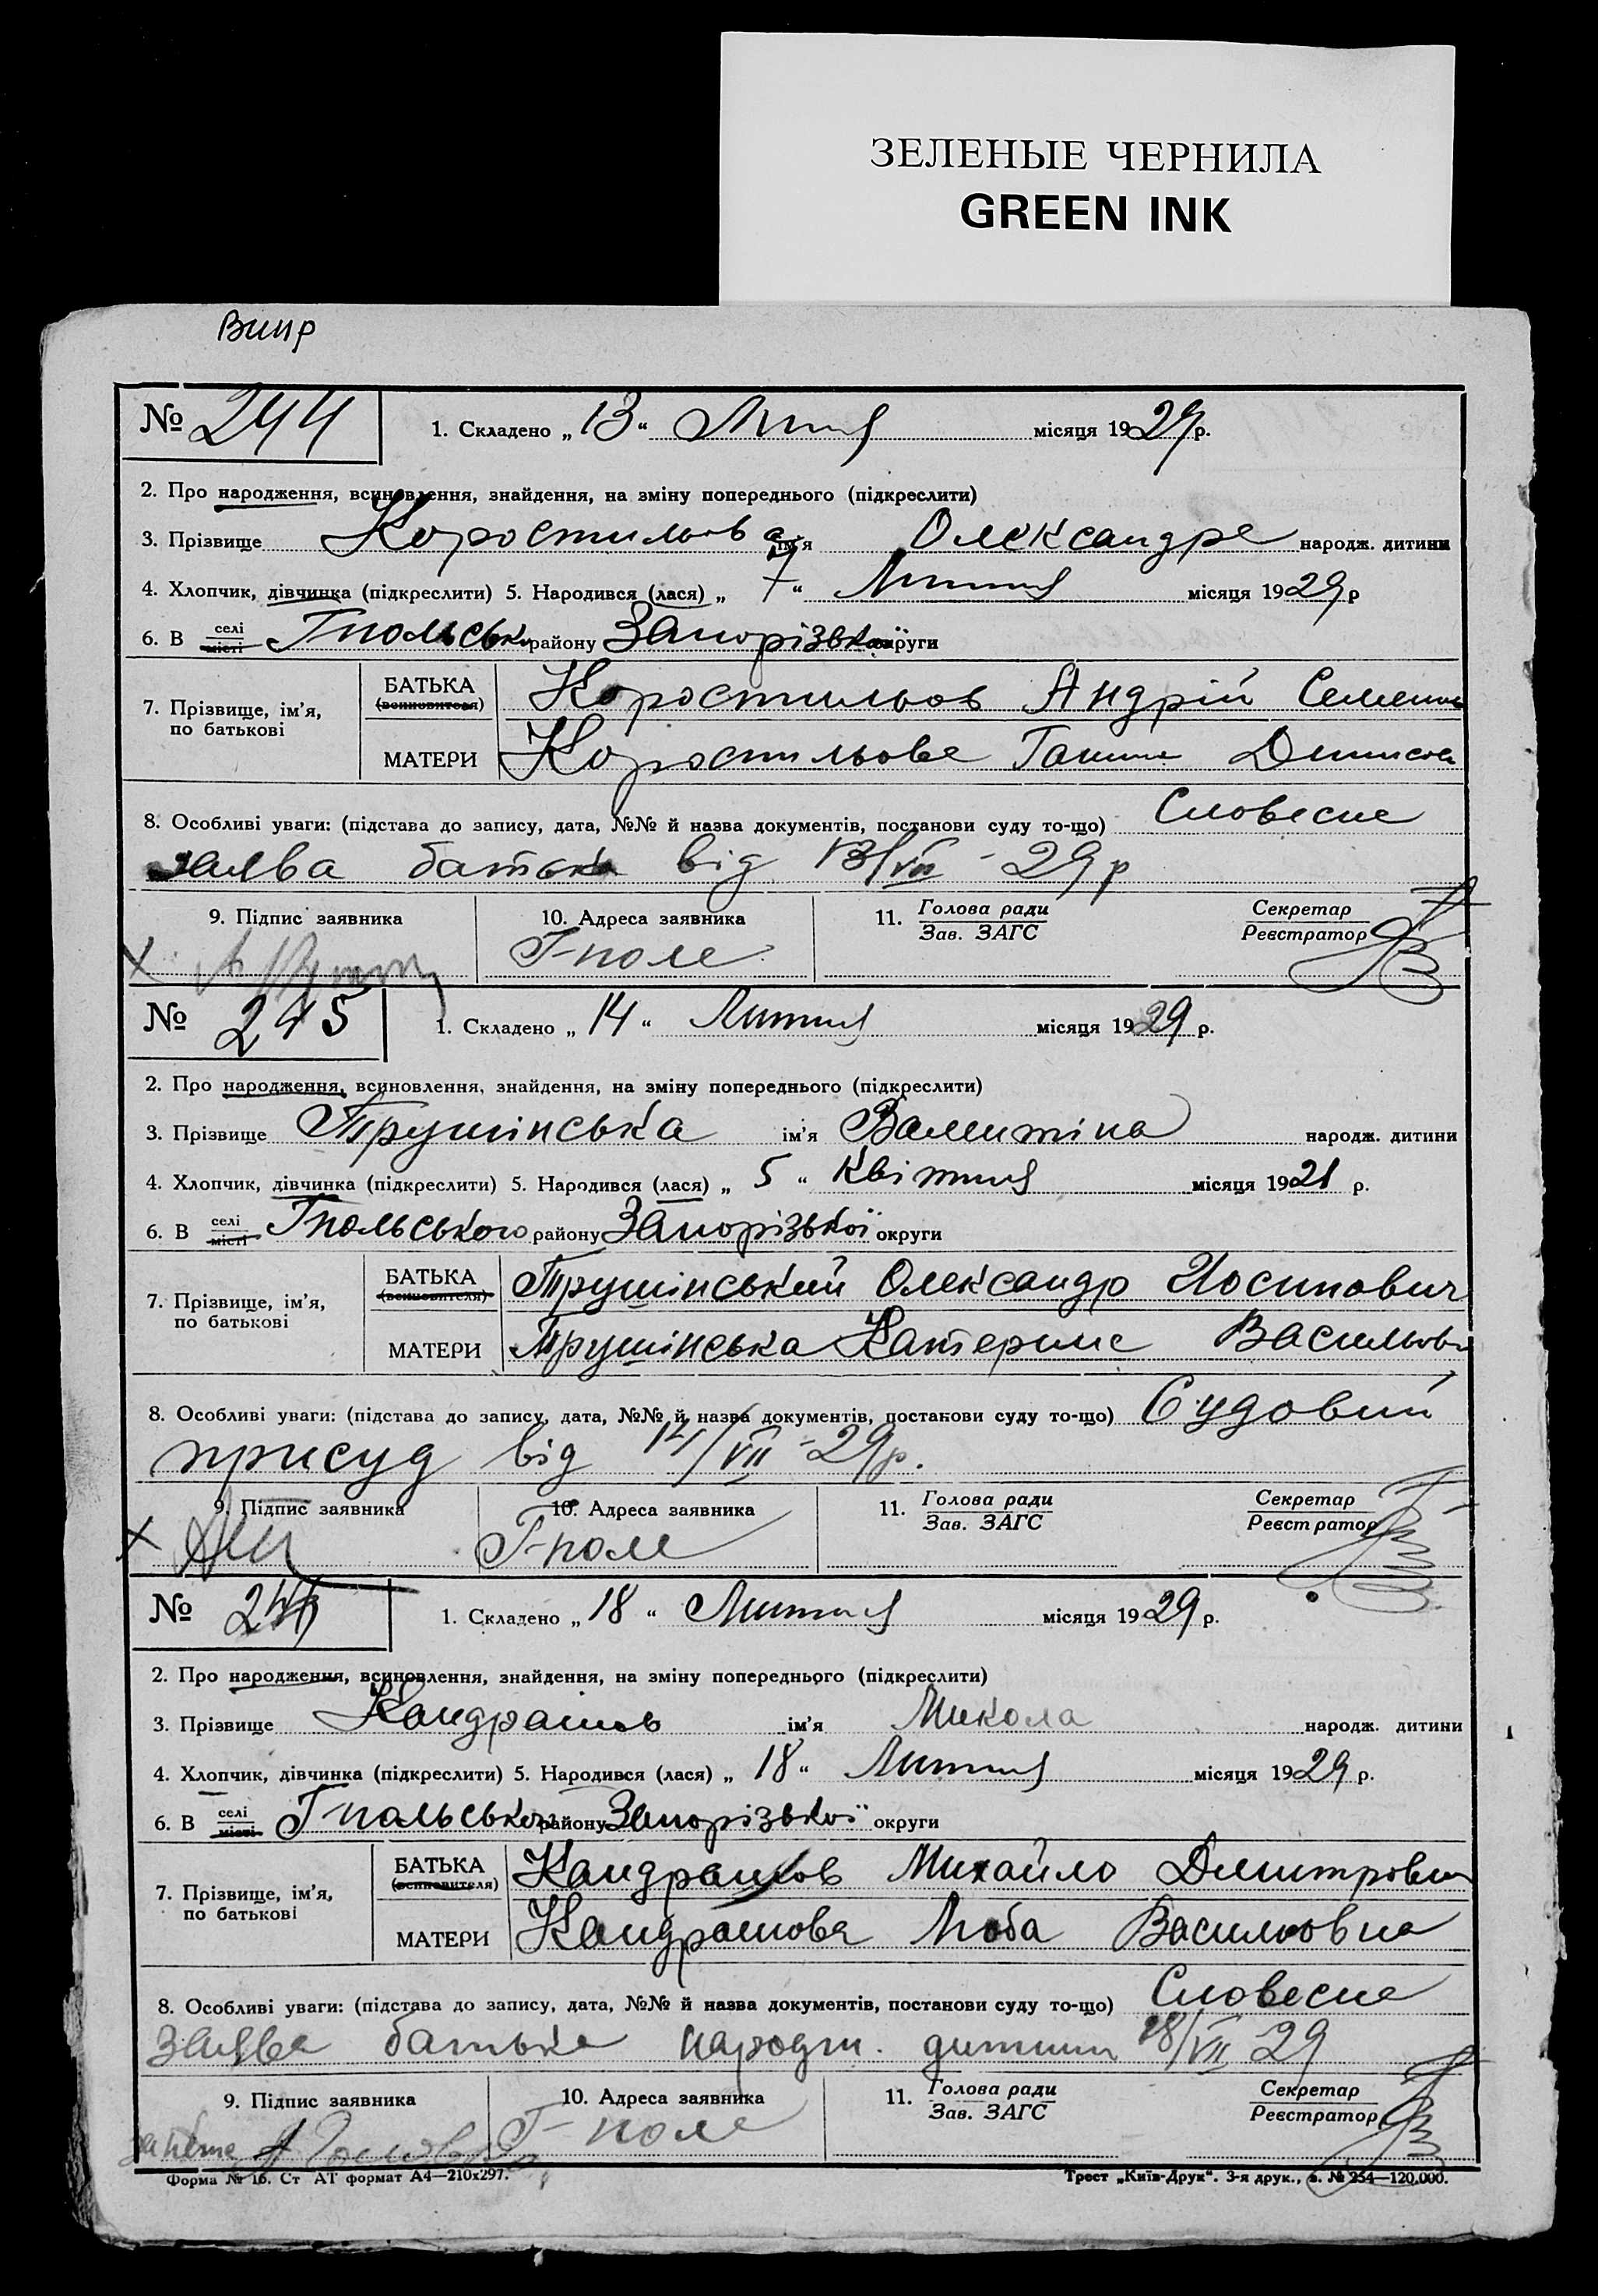 ЗЕЛЕНЫЕ ЧЕРНИЛА
GREEN INK
№ 244 1. Складено „ 13 “ Липня місяця 1929 р.
2. Про народження, всиновлення, знайдення, на зміну попереднього (підкреслити)
3. Прізвище Коростильова ім'я Олександра народж. дитини
4. Хлопчик, дівчинка (підкреслити) 5. Народився (лася) „ 7 “ Липня місяця 1929 р
6. В селі місті Гпольськ району Запорізької округи
7. Прізвище, ім'я, по батькові
БАТЬКА (всиновителя) Коростильов Андрій Семенов
МАТЕРИ Коростильова Ганна Денисов
8. Особливі уваги: (підстава до запису, дата, №№ й назва документів, постанови суду то-що) Словесна
заява батька від 13/VII - 29 р
9. Підпис заявника 10. Адреса заявника 11. Голова ради Зав. ЗАГС Секретар Реєстратор
Г-поле
№ 245 1. Складено „ 14 “ Липня місяця 1929 р.
2. Про народження, всиновлення, знайдення, на зміну попереднього (підкреслити)
3. Прізвище Трушінська ім'я Валентіна народж. дитини
4. Хлопчик, дівчинка (підкреслити) 5. Народився (лася) „ 5 “ Квітня місяця 1921 р.
6. В селі місті Гпольського району Запорізької округи
7. Прізвище, ім'я, по батькові
БАТЬКА (всиновителя) Трушінський Олександр Иосипович
МАТЕРИ Трушінська Катерина Васильовн
8. Особливі уваги: (підстава до запису, дата, №№ й назва документів, постанови суду то-що) Судовий
присуд від /VII - 29 р.
9. Підпис заявника 10. Адреса заявника 11. Голова ради Зав. ЗАГС Секретар Реєстратор
Г-поле
№ 246 1. Складено „ 18 “ Липня місяця 1929 р.
2. Про народження, всиновлення, знайдення, на зміну попереднього (підкреслити)
3. Прізвище Кандрашов ім'я Микола народж. дитини
4. Хлопчик, дівчинка (підкреслити) 5. Народився (лася) „ 18 “ Липня місяця 1929 р.
6. В селі місті Гпольського району Запорізької округи
7. Прізвище, ім'я, по батькові
БАТЬКА (всиновителя) Кандрашов Михайло Дмитрович
МАТЕРИ Кандрашова Люба Васильовна
8. Особливі уваги: (підстава до запису, дата, №№ й назва документів, постанови суду то-що) Словесна
заява батька народж. дитини 18/VII 29
9. Підпис заявника 10. Адреса заявника 11. Голова ради Зав. ЗАГС Секретар Реєстратор
Г-поле
Форма № 16. Ст АТ формат А4—210х297.
Трест „Київ-Друк“. 3-я друк., з. № 254—120.000.